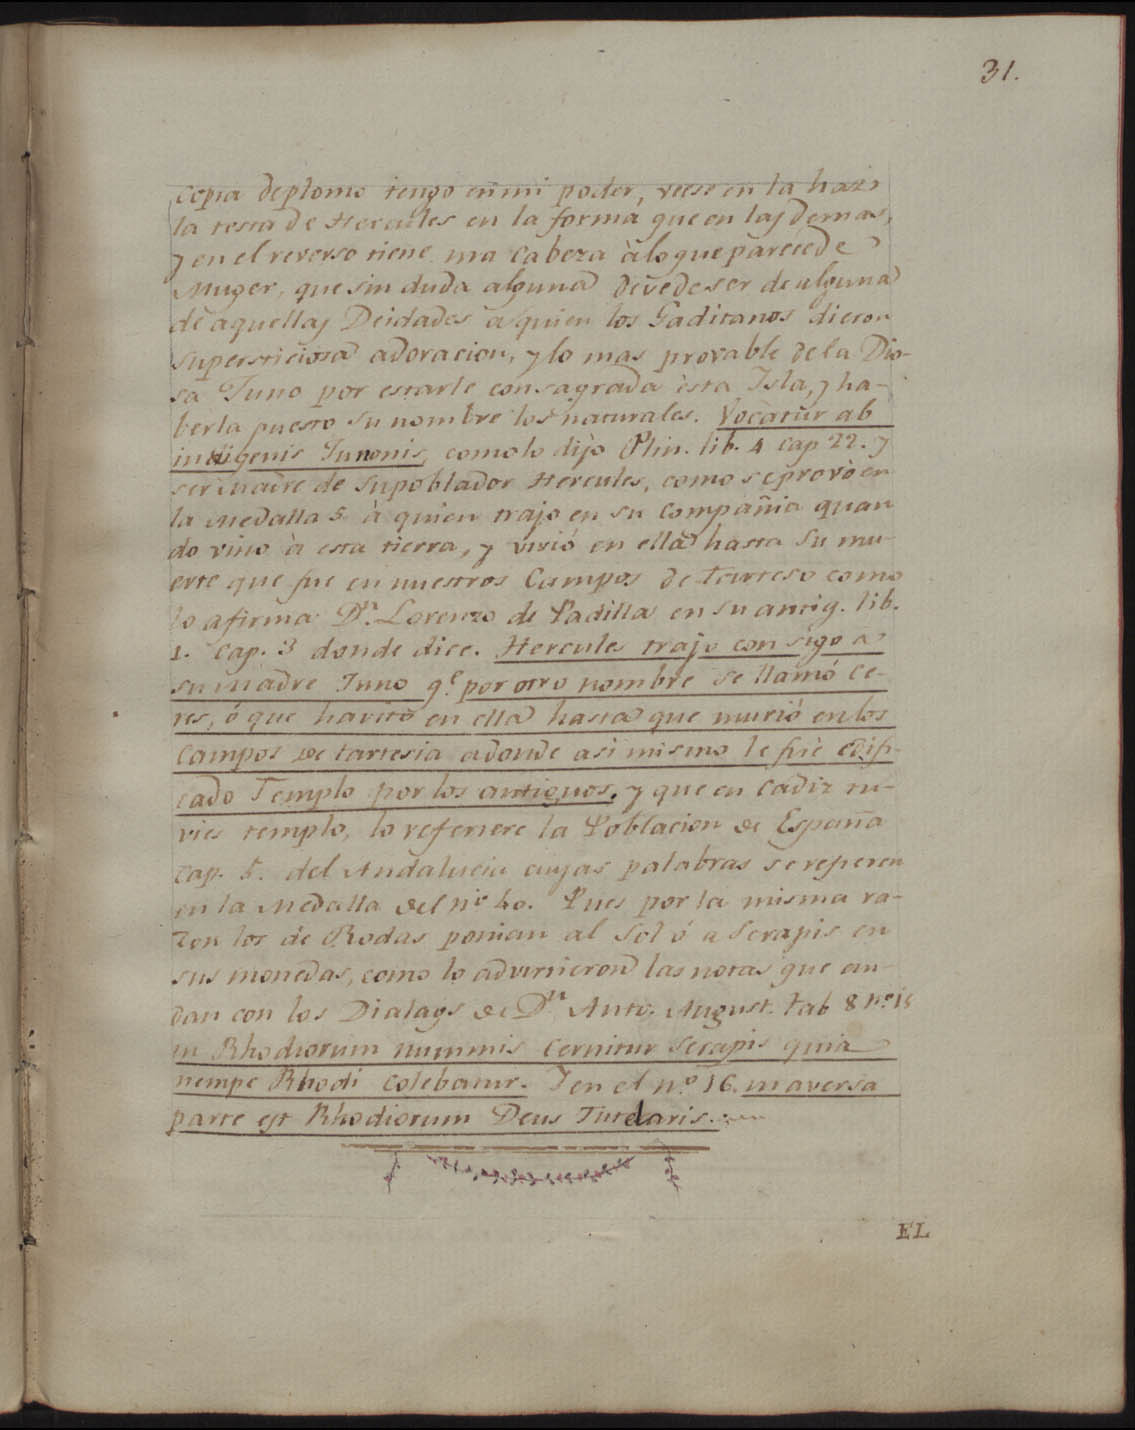 31.
copia de plomo tengo en mi poder, veese en la haz
la testa de Hercules en la forma que en las demas,
y en el reverso tiene una cabeza à lo que parece de
Muger, que sin duda alguna deve de ser de alguna
de aquellas Deidades a quien los Gaditanos dieron
supersticiosa adoracion, y lo mas provable de la Dio-
sa Juno por estarle consagrada èsta Isla, y ha-
berla puesto su nombre los naturales. Vocatur ab
indigenis Junonis, como lo dijo Plin. lib. 4 cap 22. y
ser madre de su poblador Hercules, como se provò en
la Medalla 5 à quien trajo en su compañia quan
do vino à esta tierra, y vivió en ella hasta su mu-
erte que fue en nuestros Campos de Tarteso como
lo afirma Dn. Lorenzo de Padilla en su antig. lib.
1. cap. 3 donde dice. Hercules trajo consigo a
su madre Juno qe. por otro nombre se llamó Ce-
res, ó que havitò en ella hasta que murió en los
campos de tartesia adonde asi mismo le fue edifi-
cado Templo por los antiguos, y que en Cadiz tu-
vies templo, lo referiere la Poblacion de España
cap. 5. del Andalucia cuyas palabras se refieren
en la Medalla del no. 40. Pues por la misma ra-
zon los de Rodas ponian al Sol ó a Serapis en
sus monedas, como lo advirtieron las notas que an-
dan con los Dialags de Dn. Anto. August. tab 8 no. 15
in Rhodiorum nummis cernitur Serapis quia
nempe Rhodi colebatur. Y en el no. 16. in aversa
parte est Rhodiorum Deus Tutelaris.
EL